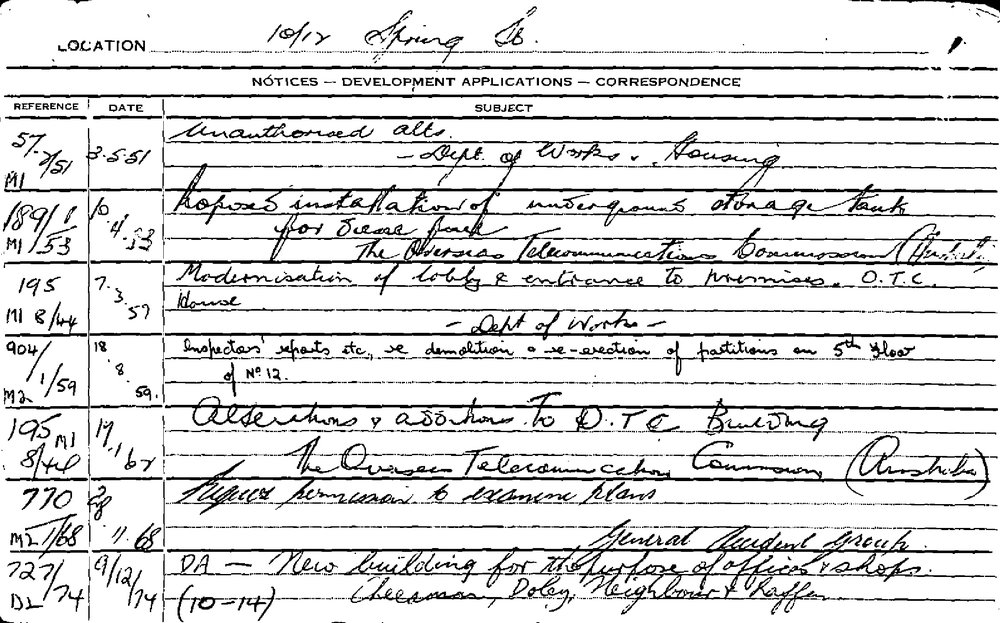 LOCATION 10/12 Spring St. 1
NOTICES — DEVELOPMENT APPLICATIONS — CORRESPONDENCE
REFERENCE DATE SUBJECT
57. 3.5.51 Unauthorised alts.
2/51
M1 — Dept. of Works & Housing
189/1 10.4.53 Proposed installation of underground storage tank
for diesel fuel
M1/53 The Overseas Telecommunications Commission (Australia)
195 7.3.57 Modernisation of lobby & entrance to premises. O.T.C.
House
M1 8/44 — Dept of Works —
904/ 18.8.59. Inspectors' reports etc., re demolition & re-erection of partitions on 5th Floor
1/59 of No 12.
M2
195 M1 17.1.62 Alterations & additions to O.T.C Building
8/44 The Overseas Telecommunication Commission (Australia)
770 28 Request permission to examine plans
M2 1/68 11.68 General Accident Group.
727/ 9/12/ DA — New building for the purpose of offices & shops.
D2 74 74 (10-14) Cheesman, Doley, Neighbour & Raffen